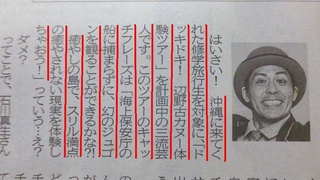 はいさい！　沖縄に来てく
れた修学旅行生を対象に、「ド
ッキドキ！　辺野古カヌー体
験ツアー」を計画中の三流芸
人です。このツアーのキャッ
チフレーズは「海上保安庁の
船に捕まらずに、幻のジュゴ
ンを観ることができるかな？！
癒やしの島で、スリル満点
の癒やされない現実を体験し
ちゃおう！」っていう…え？
ダメ？
ってことで、石川真生さん